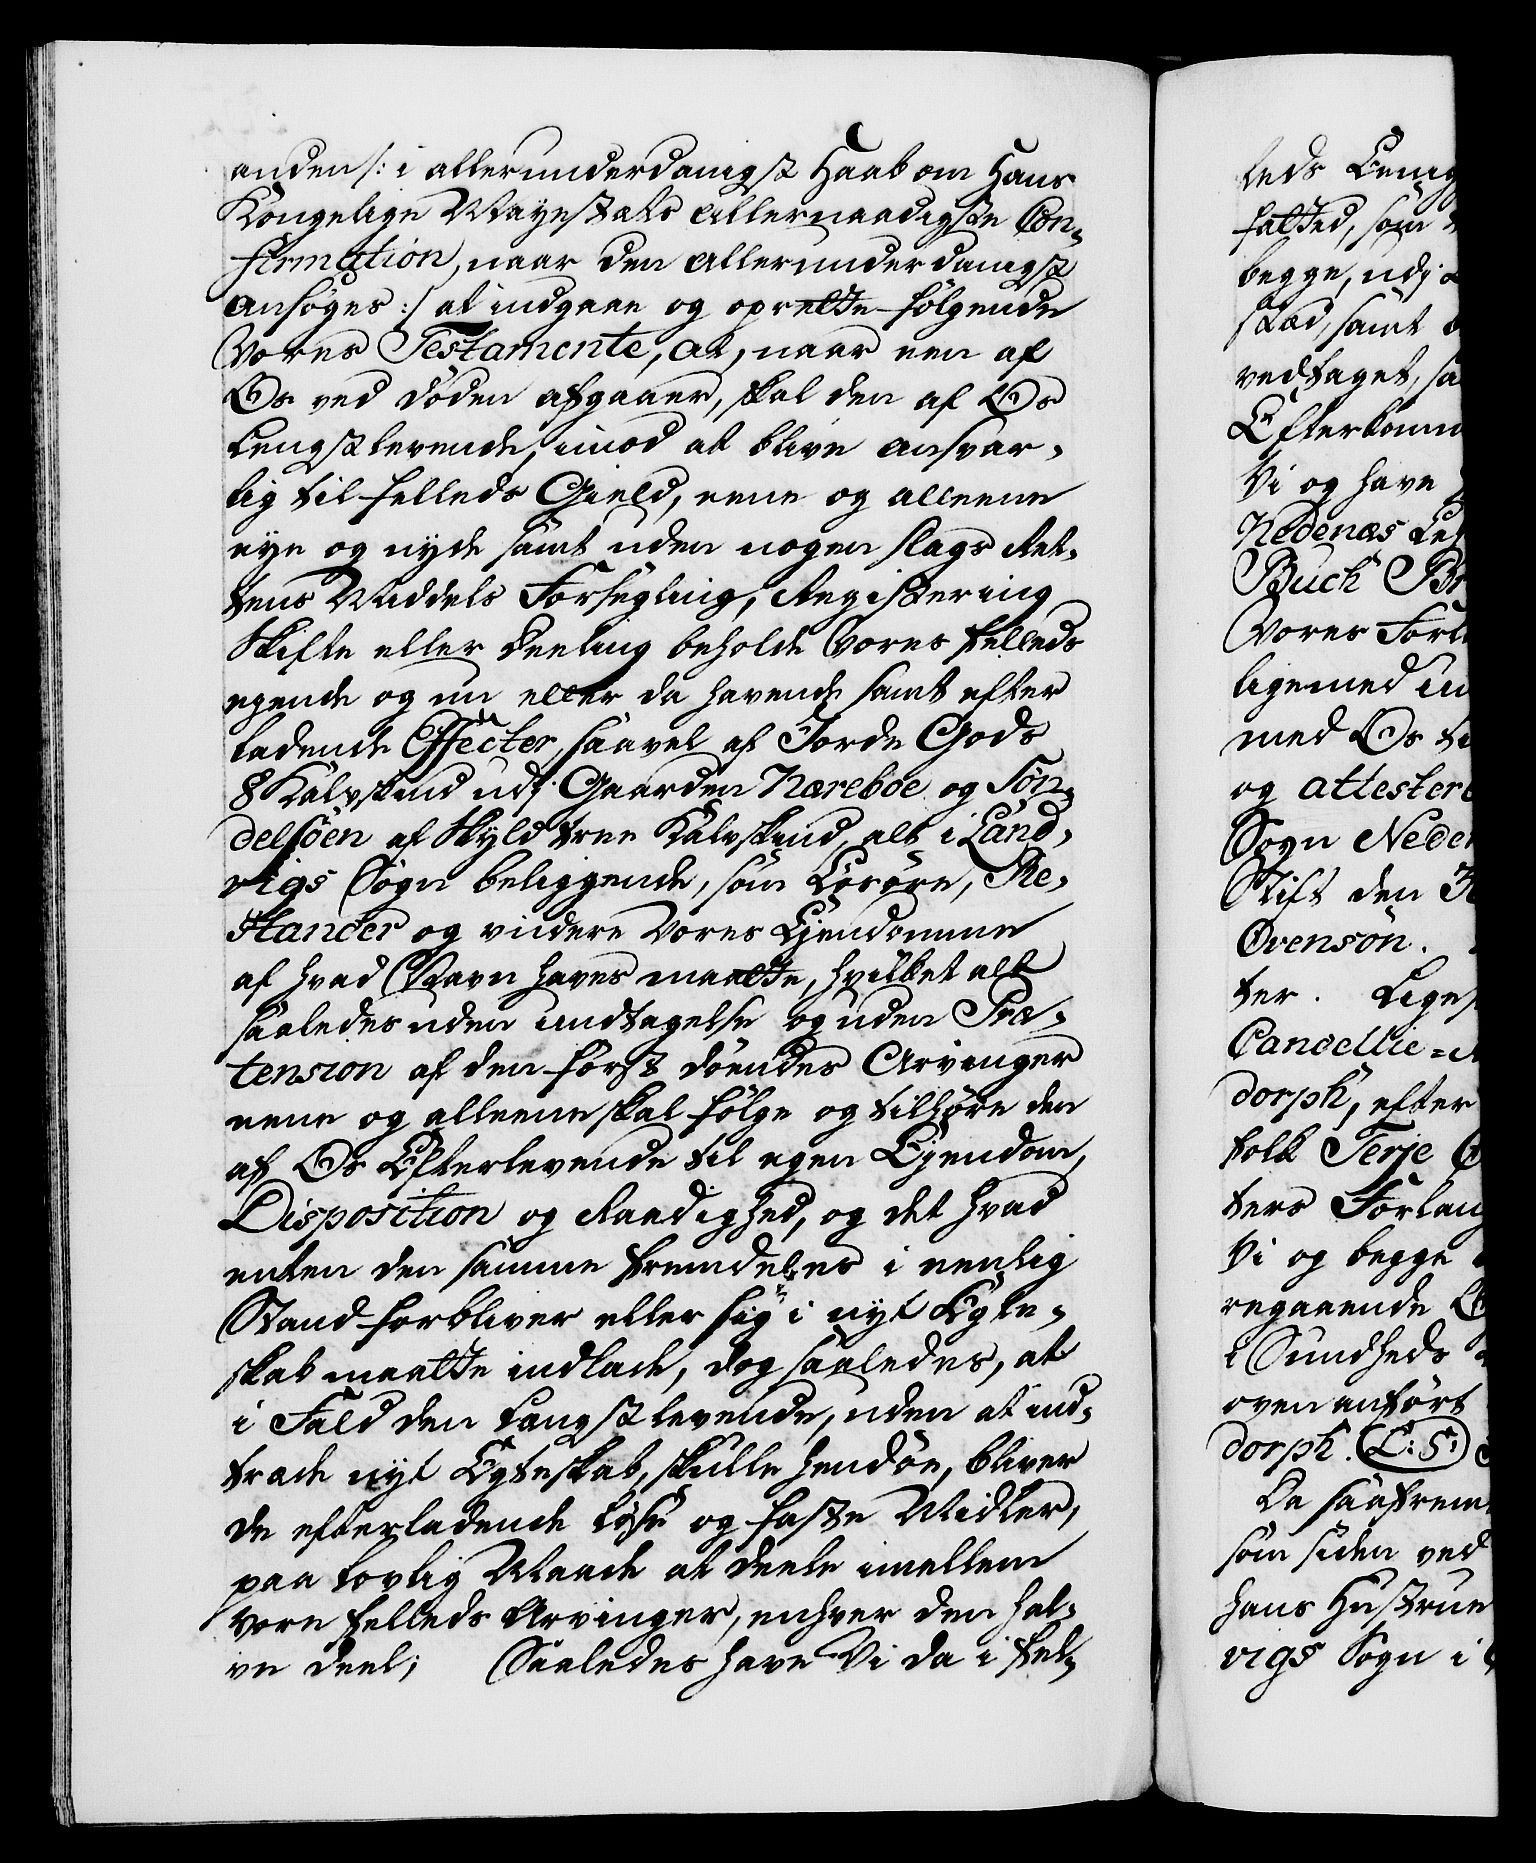 anden /: i allerunderdanigst Haab om Hans
Kongelige Mayestæts Allernaadigste Con-
firmation, naar den allerunderdanigst
ansøges :/ at indgaae og oprette følgende
Vores Testamente, at, naar een af
Os ved Døden afgaaer, skal den af Os
Lengstlevende, imod at blive ansvar-
lig til felleds Gield, eene og alleene
eye og nyde samt uden nogen slags Ret-
tens Middels Forsegling, Registering
Skifte eller Deeling beholde Vores felleds
egende og nu eller da havende samt efter
ladende Effecter, saavel af Jorde Gods
8 Kalvskind udj Gaarden Næreboe og Tøn-
delsöen af Skyld tree Kalvskind, alt i Land-
vigs Sogn beliggende, som Løsøre, Re-
stancer og videre Vores Ejendomme
af hvad Navn haves maatte, hvilket alt
saaledes uden undtagelse og uden Præ-
tension af den først døendes Arvinger
eene og alleene skal følge og tilhøre den
af Os Efterlevende til egen Ejendom,
Disposition og Raadighed, og det hvad
enten den samme fremdeles i eenlig
Stand forbliver eller sig i nyt Egte-
skab maatte indlade, dog saaledes, at
i Fald den Langstlevende, uden at ind-
træde nyt Egteskab, skulle hendøe, bliver
de efterladende løse og faste Midler,
paa lovlig Maade at deele imellem
vore felleds Arvinger, enhver den hal-
ve deel; Saaledes have Vi da i fel-
leds
fatted, som
begge, udj
stæd, samt
vedtaget, sa
Efterkomm
Vi og have
Nedenæs
Buch
Vores Forl
ligemed
med Os
og attester
Sogn Neden
Stift den
Ovenson.
ter. Liges
Cancellie=
dorph, efter
folk Terje
ters Forlang
Vi og begge
regaaende
i Sundheds
ovenanført
dorph. (L:S:)
Da saafrem
som siden ved
hans Hustrue
vigs Sogn i